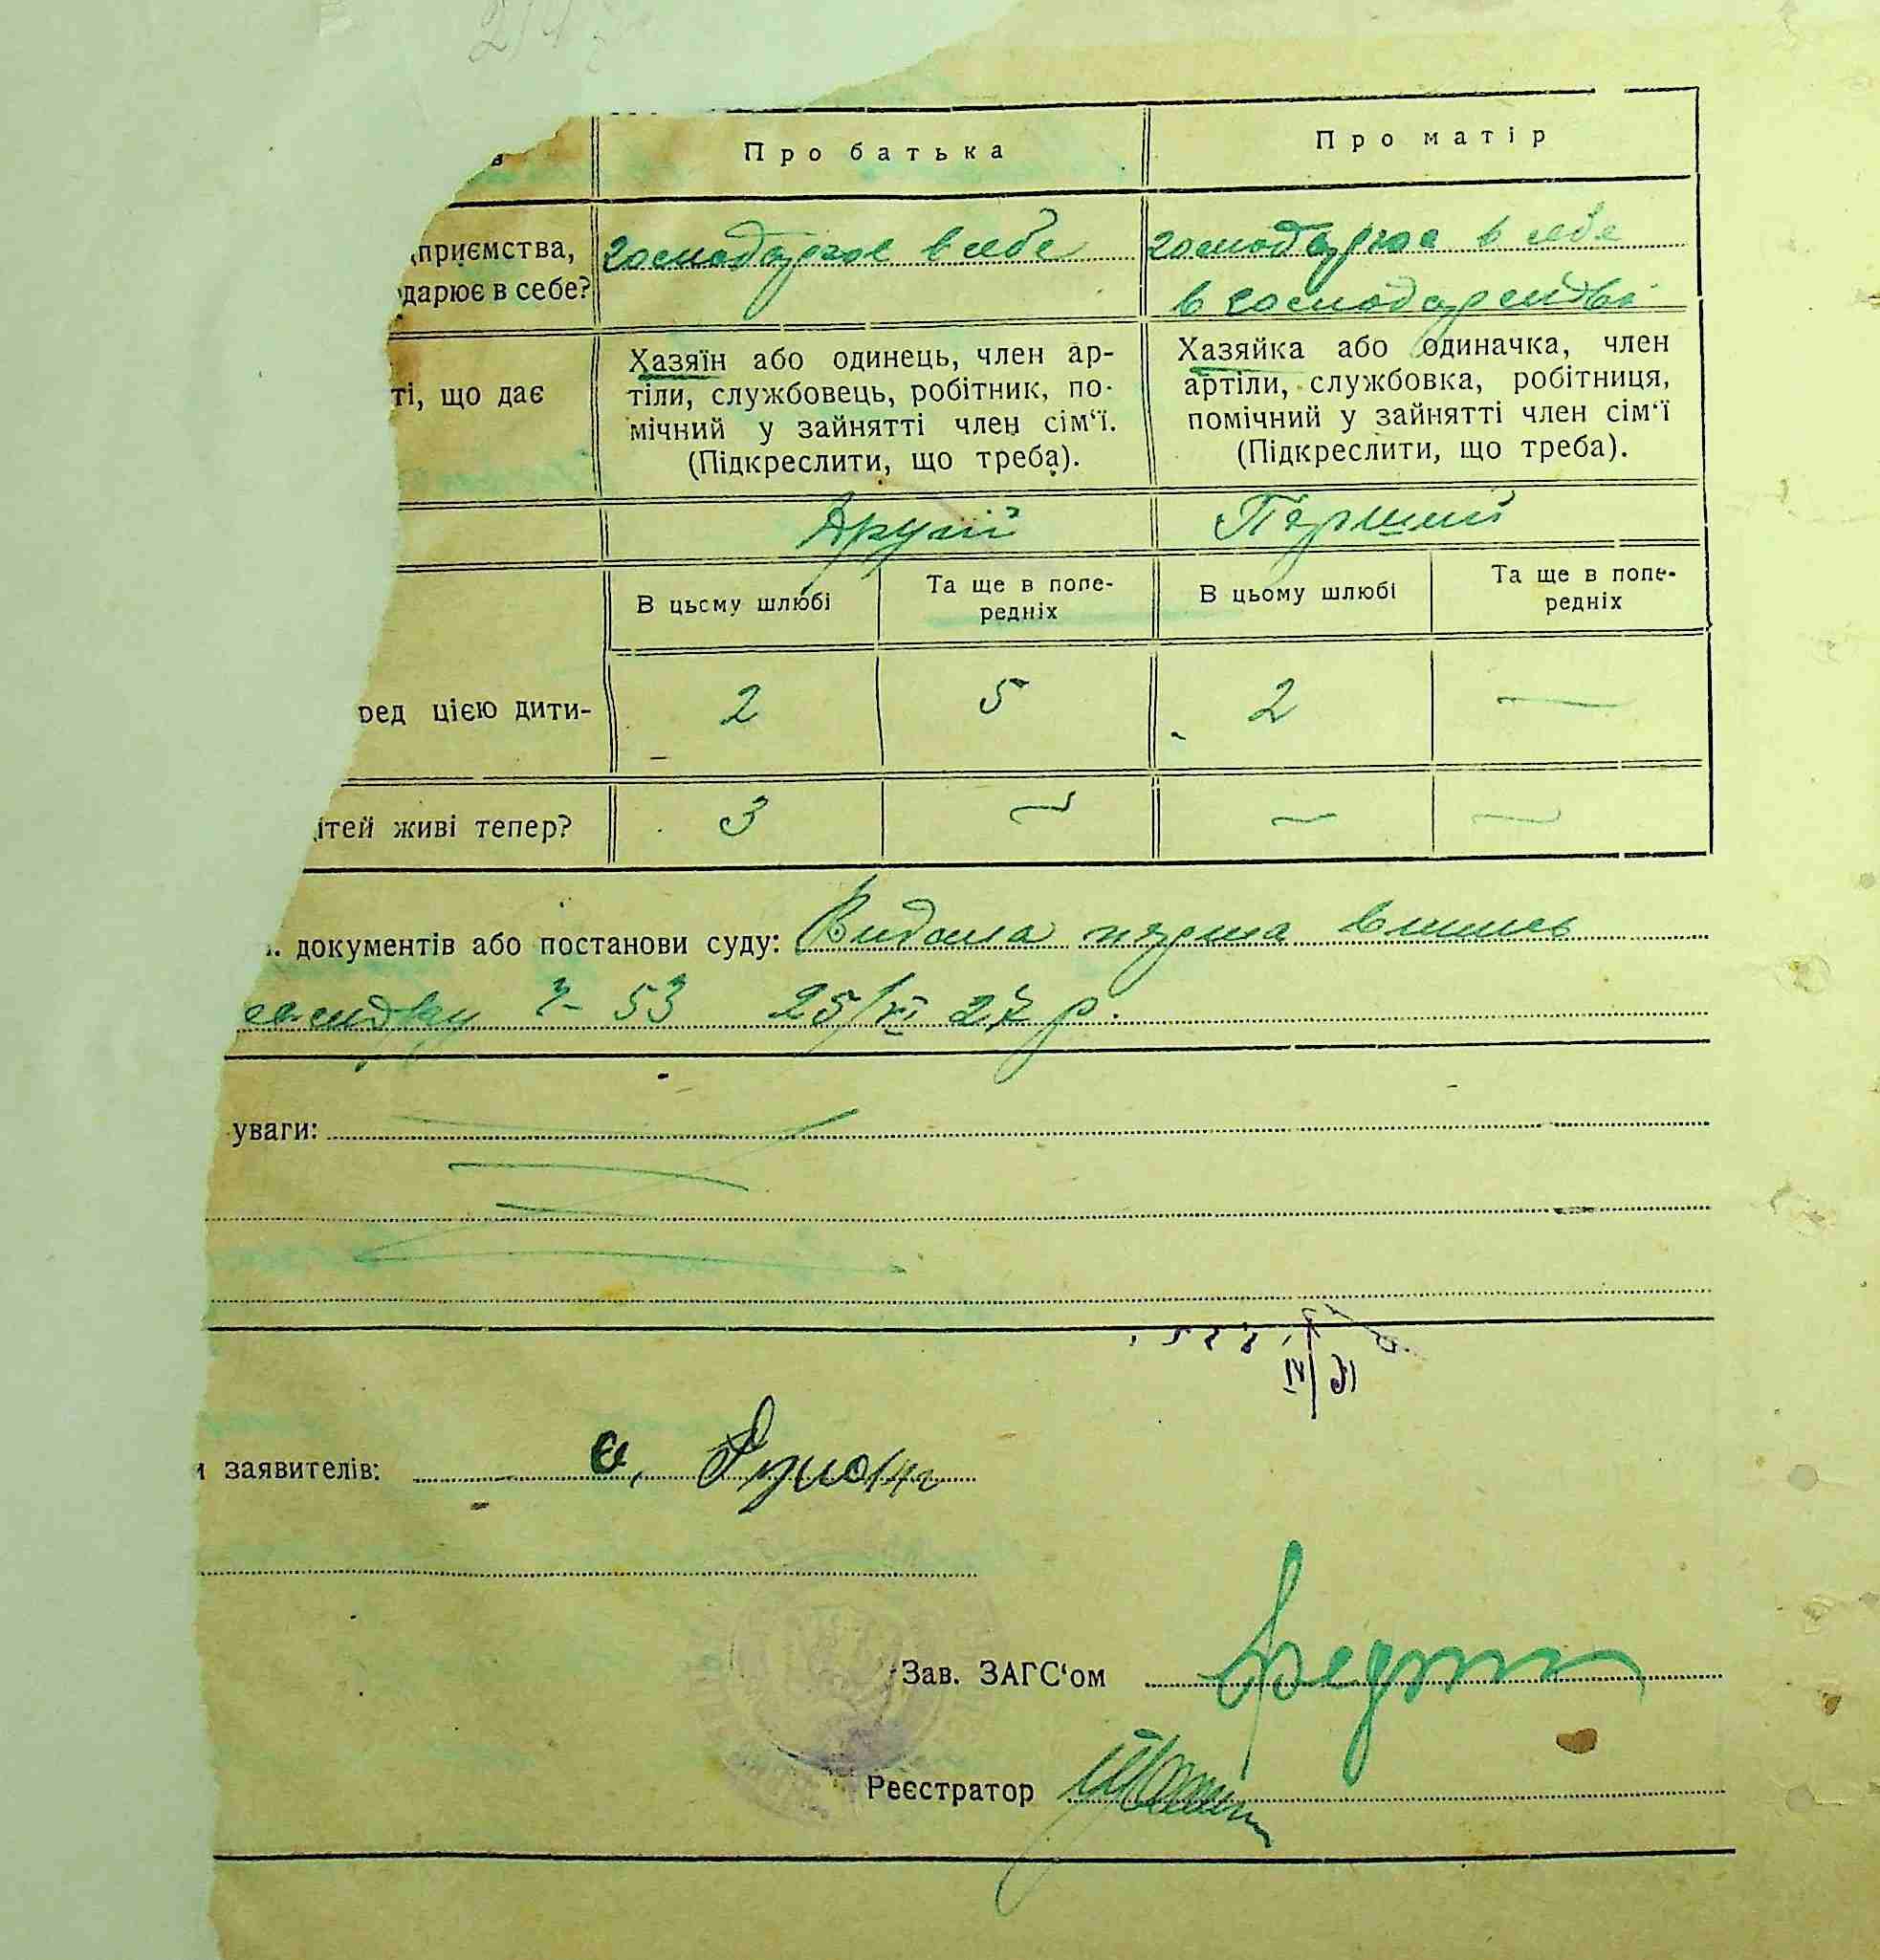 Про батька Про матір
приємства, господарює в себе господарює в себе
дарює в себе? в господарстві
Хазяїн або одинець, член ар- Хазяйка або одиначка, член
ті, що дає тіли, службовець, робітник, по- артіли, службовка, робітниця,
мічний у зайнятті член сім‘ї. помічний у зайнятті член сім‘ї
(Підкреслити, що треба). (Підкреслити, що треба).
Другий Перший
В цьому шлюбі Та ще в попе- В цьому шлюбі Та ще в попе-
редніх редніх
ред цією дити- 2 5 2 —
ітей живі тепер? 3 — — —
документів або постанови суду: Видана перша випись
53 25/XI 27 р.
уваги:
заявителів:
Зав. ЗАГС‘ом
Реєстратор